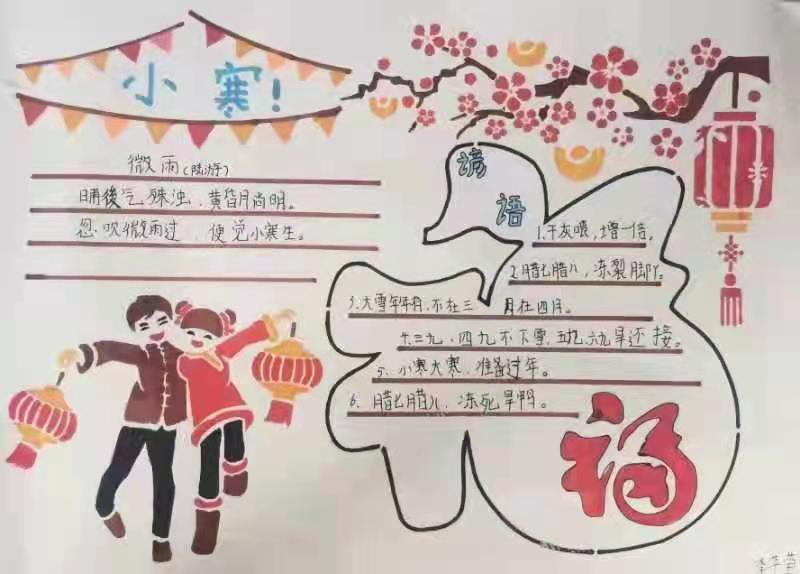 小寒！
微雨（陆游）
晴後气殊浊，黄昏月尚明。
忽吹微雨过，便觉小寒生。
谚语
1.干灰喂，增一倍，
2.腊七腊八，冻裂脚丫。
3.大雪年年有，不在三月在四月。
4.三九，四九不下雪，五九六九旱还接。
5、小寒大寒，准备过年。
6、腊七腊八，冻死旱鸭。
福